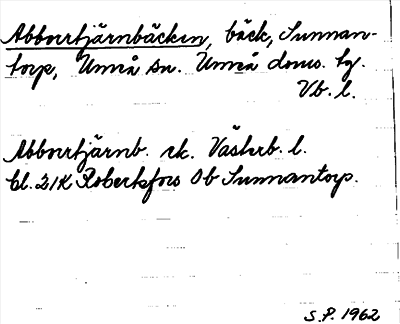 Abborrtjärnbäcken, bäck, Sunnan-
torp, Umeå sn. Umeå doms. tg.
Vb. l.
Abborrtjärnb. rk. Västerb. l.
bl. 21K Robertsfors Ob Sunnantorp.
S.P. 1962